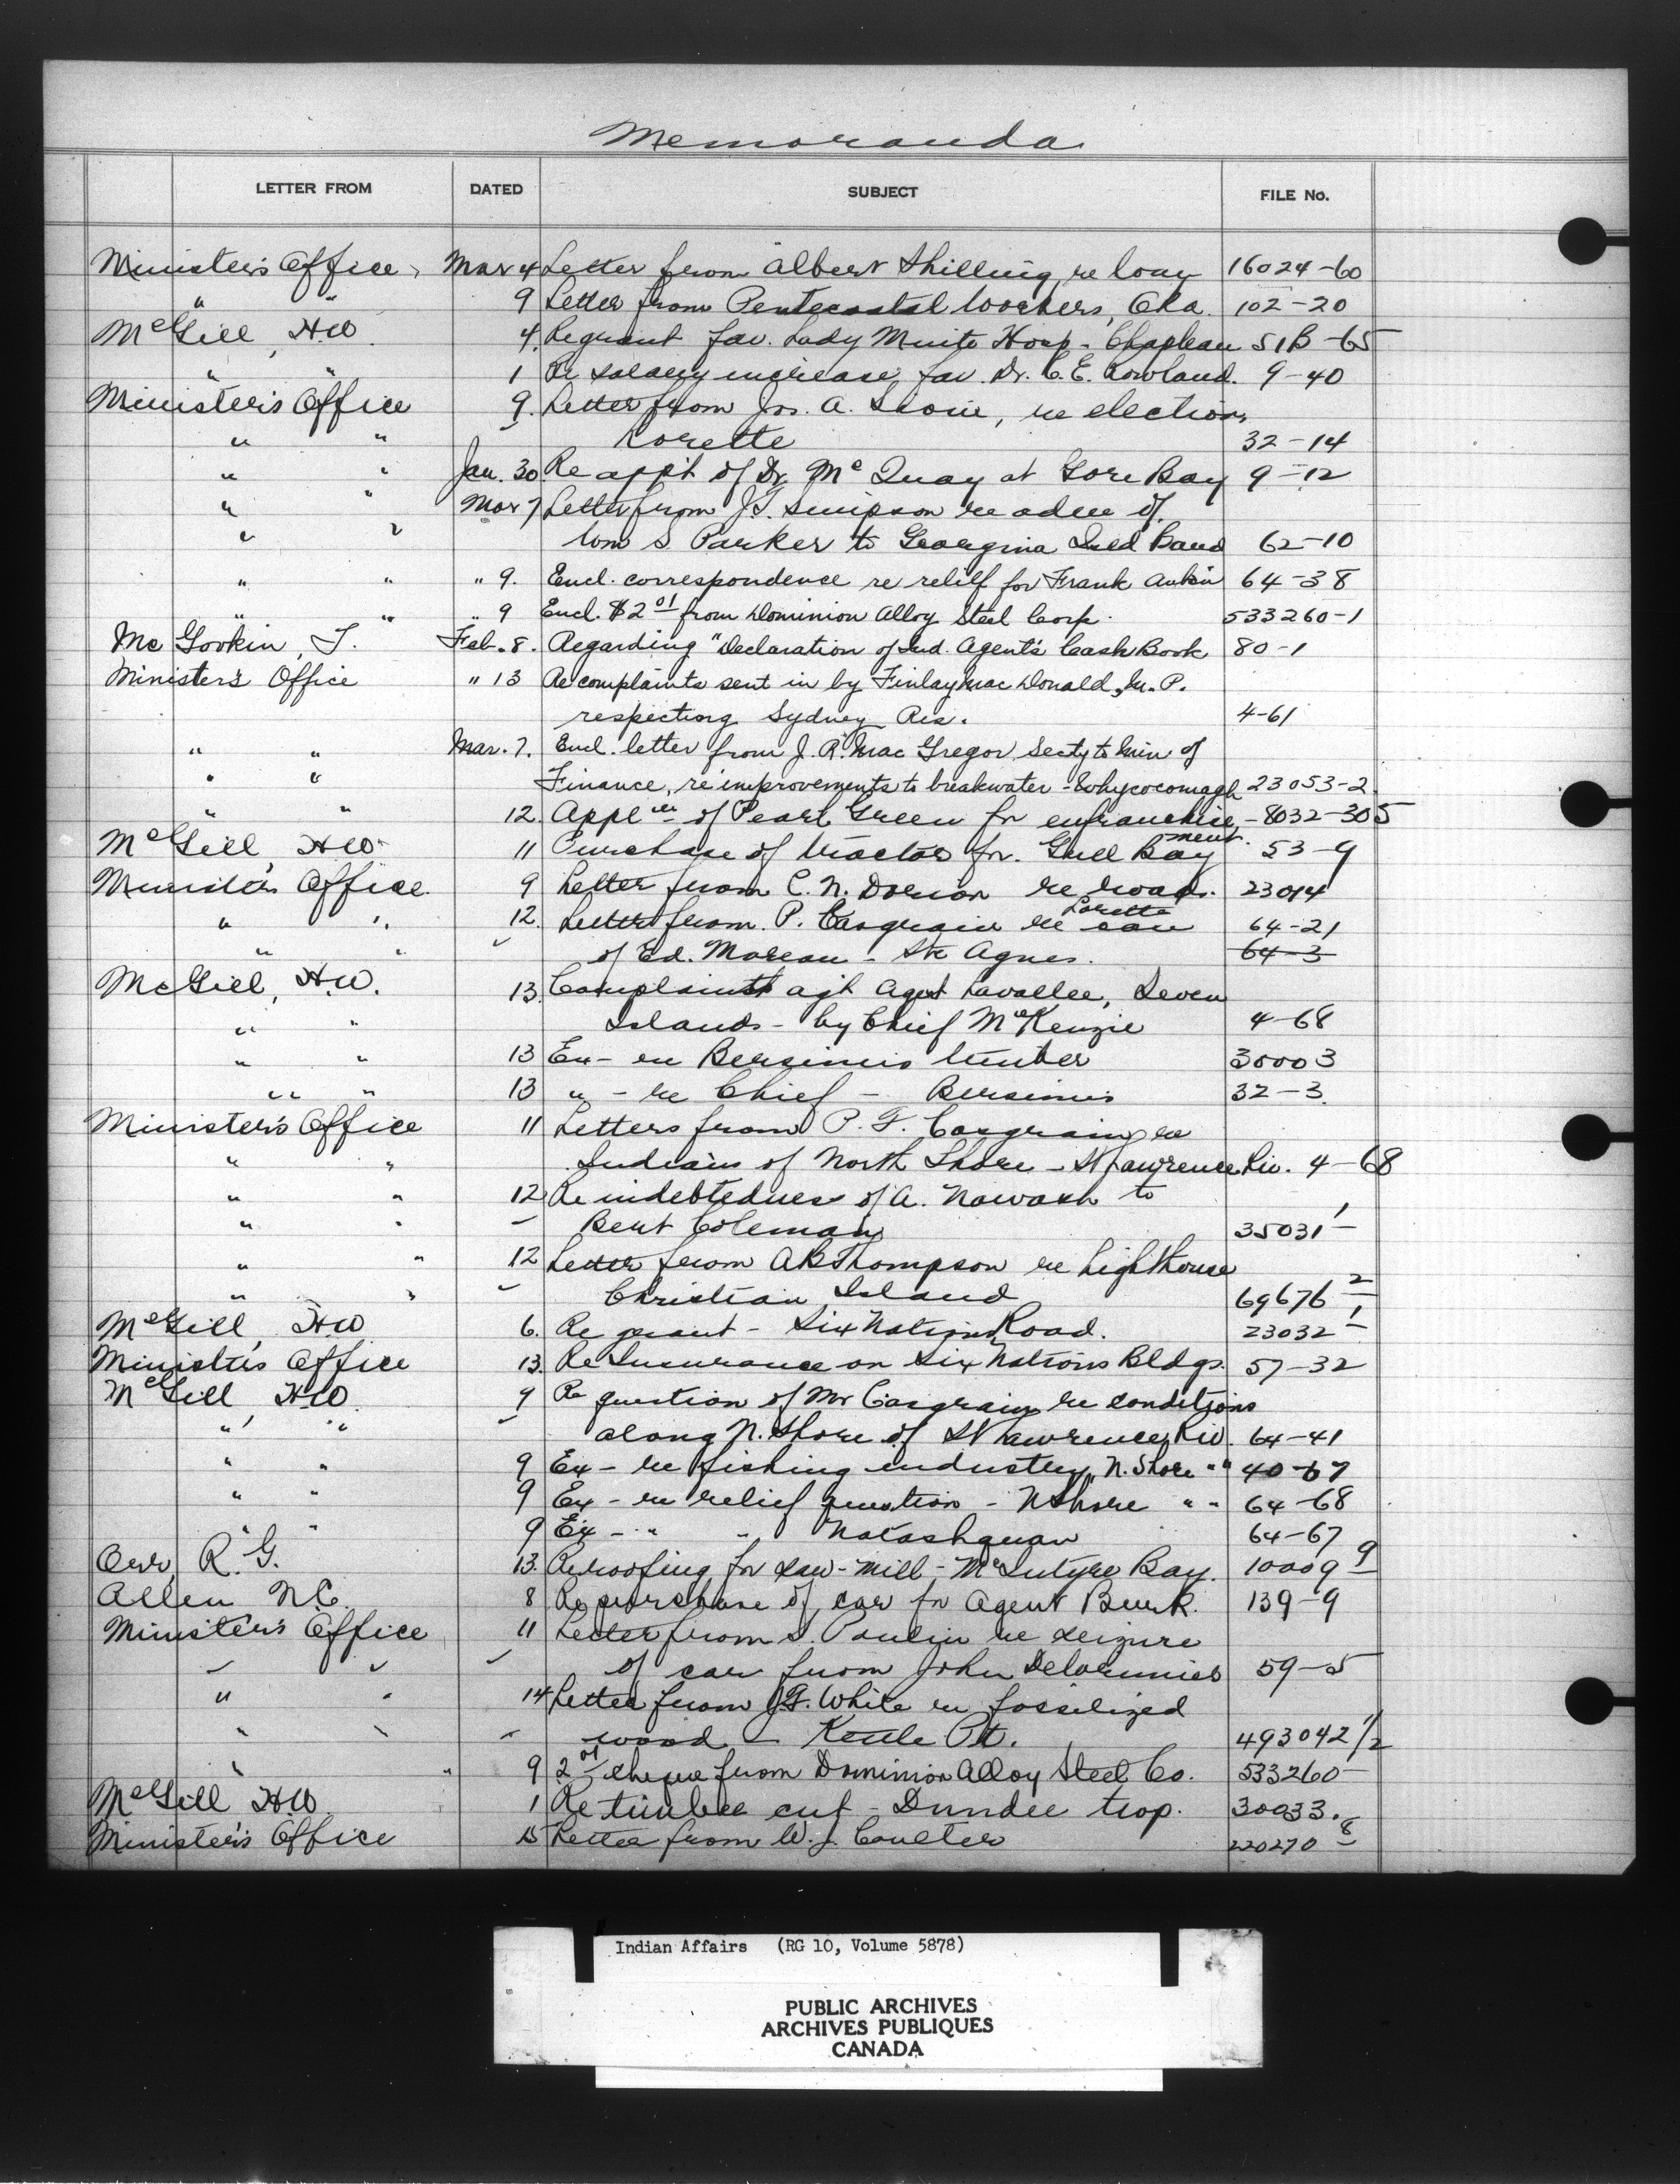 Memoranda
LETTER FROM DATED SUBJECT FILE No.
Minister's Office, Mar 4 Letter from Albert Shilling re loan 16024-60
" " 9 Letter from Pentecostal Workers, Oka. 102-20
McGill, H.W. 4. Re grant fav. Lady Minto Hosp - Chapleau 51B-65
" " 1 Re salary increase fav Dr. C.E. Rowland. 9-40
Minister's Office 9. Letter from Jos. A. Sioui, re election,
" " Lorette 32-14
" " Jan. 30 Re app't of Dr. McQuay at Gore Bay 9-12
" " Mar 7 Letter from J.T. Simpson re adm of
" " Wm S Parker to Georgina Isld Band 62-10
" " " 9. Encl. correspondence re relief for Frank 64-38
" " " 9 Encl. $2 01 from Dominion Alloy Steel Corp. 533260-1
Mc Gookin, T. Feb. 8. Regarding "Declaration of Ind. Agent's Cash Book 80-1
Minister's Office " 13 Re complaints sent in by Finlay MacDonald, M.P.
respecting Sydney Res. 4-61
" " Mar. 7. Encl. letter from J.R. MacGregor, Secty to Min of
" " Finance, re improvements to breakwater - Whycocomagh 23053-2
" " 12. Applcn of Pearl Green for enfranchise- - 8032-305
ment.
McGill, H.W. 11 Purchase of tractor for. Gull Bay 53-9
Minister's Office 9 Letter from C.N. Dorion re road. 23014
Lorette
" " 12. Letter from P. Casgrain re case 64-21
" " " of Ed. Moreau - Ste Agnes. 64-3
McGill, H.W. 13. Complaints agt Agent Lavallee, Seven
" " Islands - by Chief McKenzie 4-68
" " 13 Ex - re Bersimis timber 30003
" " 13 " - re Chief - Bersimis 32-3.
Minister's Office 11 Letters from P.F. Casgrain re
" " Indians of North Shore - St Lawrence Riv. 4-68
" " 12 Re indebtedness of A. Nawash to
" " " Bert Coleman 35031-1
" " 12 Letter from AB Thompson re lighthouse
" " " Christian Island 69676-2
McGill, H.W. 6. Re grant - Six Nations Road. 23032-1
Minister's Office 13. Re Insurance on Six Nations Bldgs. 57-32
McGill, H.W. 9 Re question of Mr Casgrain re conditions
" " " along N. Shore of St Lawrence Riv. 64-41
" " 9 Ex - re fishing industry, N. Shore " " 40-67
" " 9 Ex - re relief question - N Shore " " 64-68
" " 9 Ex - " " Natashquan 64-67
Orr, R.G. 13. Re roofing for saw-mill - McIntyre Bay. 10009-9
Allen N.C. 8 Re purchase of car for Agent Burk. 139-9
Minister's Office 11 Letter from S. Poulin re seizure
" " " of car from John Delormier 59-5
" " 14 Letter from J.G. White re fossilized
" " " wood - Kettle Pt. 493042 1/2
" " 9 2 01 cheque from Dominion Alloy Steel Co. 533260-
McGill H.W. 1 Re timber cut - Dundee trop. 30033.
Minister's Office 15 Letter from W.J. Coulter 220270-8
Indian Affairs (RG 10, Volume 5878)
PUBLIC ARCHIVES
ARCHIVES PUBLIQUES
CANADA